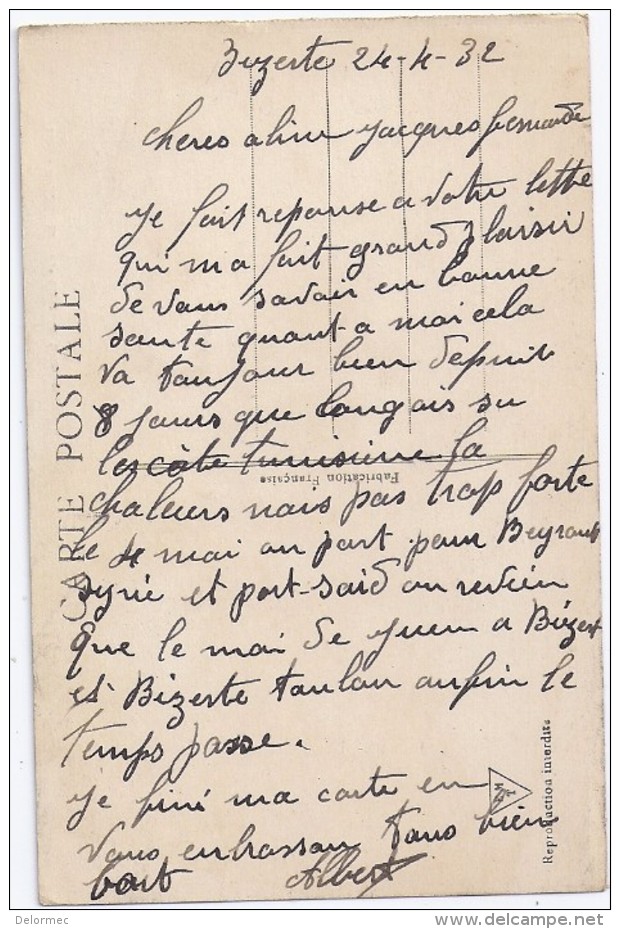 Bizerte 24-4-32
cheres aline Jacques fernande
Je fait reponse a votre lettre
qui ma fait grand plaisir
de vous savoir en bonne
sante quant-a moi cela
va toujour bien depuis
8 jours que longais su
les côte tunisiene la
chaleurs nais pas trop forte
le 4 mai on part pour Beyrout
syrie et port-saïd on revien
que le mai de juen a Bizert
et Bizerte toulon enfin le
temps passe.
Je finé ma carte en
vous enbrassan tous bien
fort Albert
CARTE POSTALE
Fabrication Française
Reproduction interdite
Delormec
www.delcampe.net